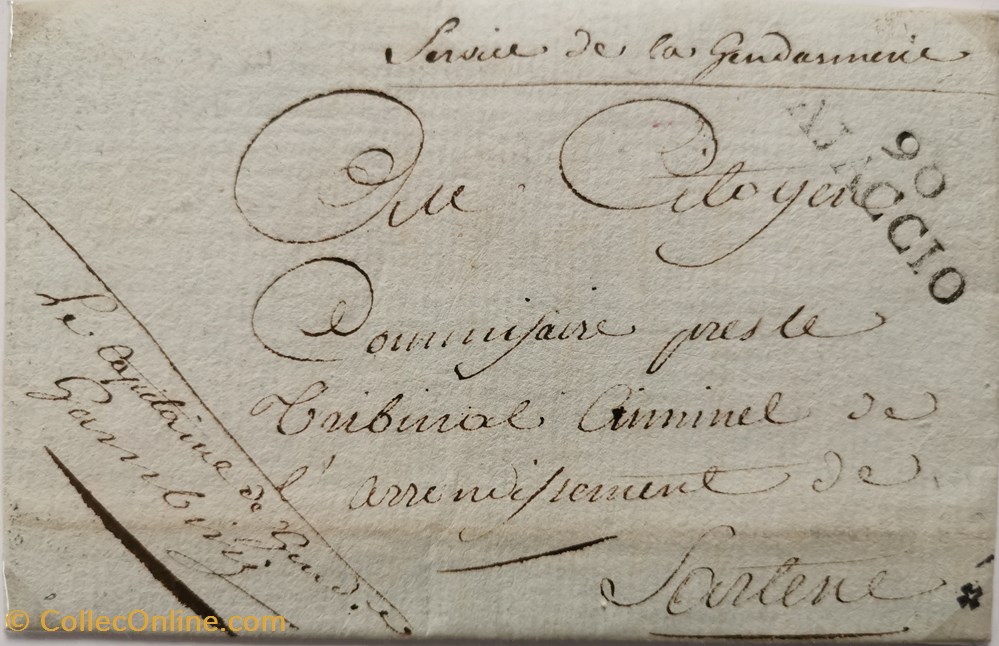 Service de la Gendarmerie
90
AJACCIO
Au Citoyen
Commissaire pres le
Tribunal Criminel de
l'arrondissement de
Sartene
Le Capitaine de Gend.ie
© CollecOnline.com